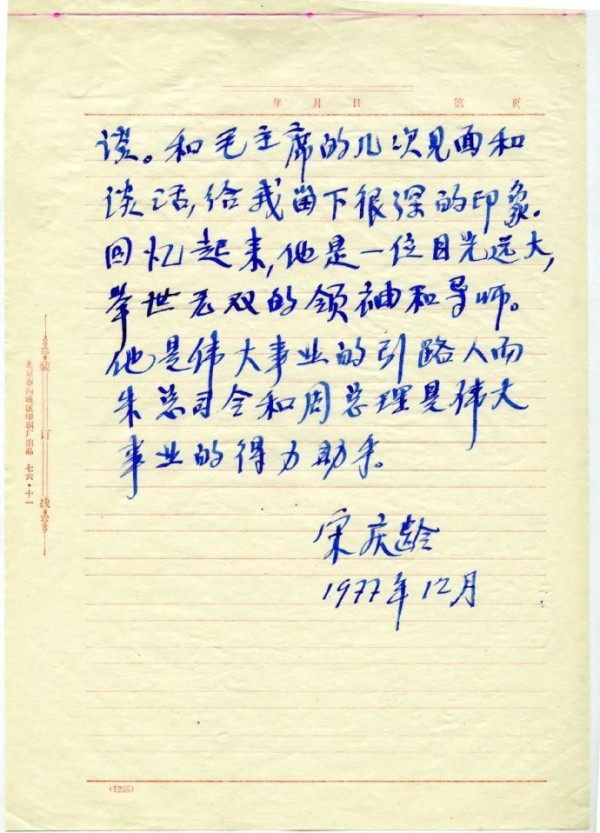 年 月 日 第 页
谈。和毛主席的几次见面和
谈话,给我留下很深的印象。
回忆起来,他是一位目光远大,
举世无双的领袖和导师。
他是伟大事业的引路人而
朱总司令和周总理是伟大
事业的得力助手。
宋庆龄
1977年12月
装订线
北京市西城区印刷厂出品 七六·十一
(1255)